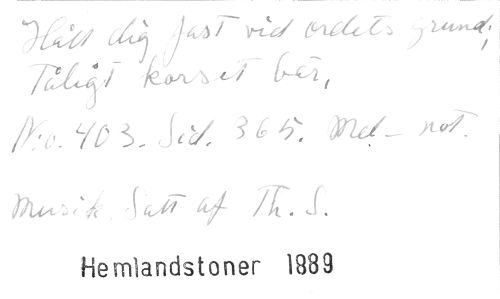 Håll dig fast vid ordets grund;
Tåligt korset bär,
No. 403. Sid. 365. Med not.
Musik Satt af Th. S.
Hemlandstoner 1889